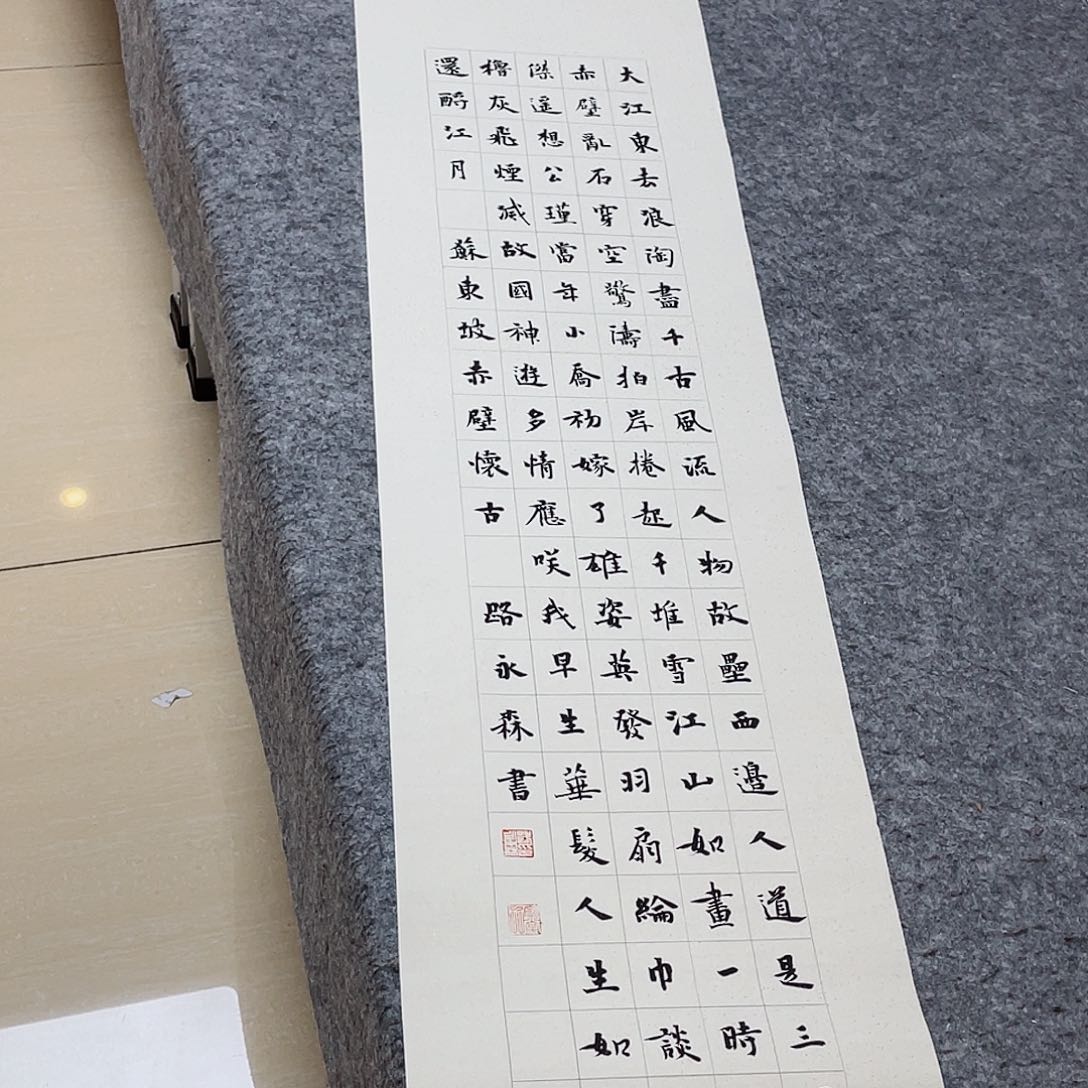 大江東去浪淘盡千古風流人物故壘西邊人道是三
赤壁亂石穿空驚濤拍岸捲起千堆雪江山如畫一時
傑遥想公瑾當年小喬初嫁了雄姿英發羽扇綸巾談
櫓灰飛煙滅故國神遊多情應咲我早生華髮人生如
還酹江月 蘇東坡赤壁懷古 路永森書